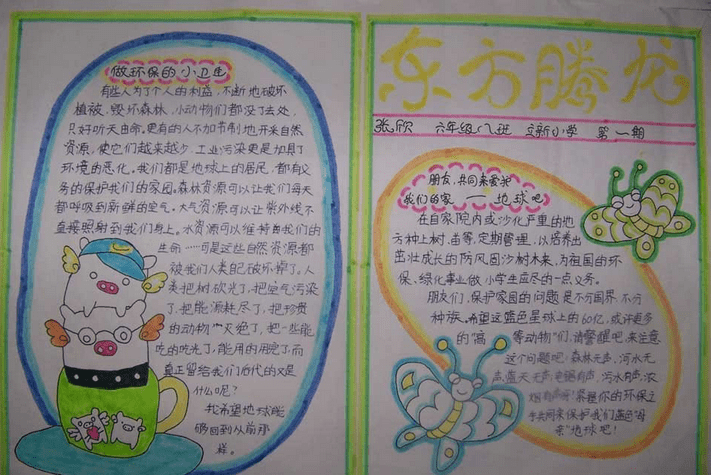 做环保的小卫士
有些人为了个人的利益，不断地破坏
植被，毁坏森林，小动物们都没了去处，
只好听天由命。更有的人不加节制地开来自然
资源，使它们越来越少。工业污染更是加具了
环境的恶化。我们都是地球上的居民，都有义
务的保护我们的家园。森林资源可以让我们每天
都呼吸到新鲜的空气。大气资源可以让紫外线不
直接照射到我们身上。水资源可以维持
我们的
生命……可是这些自然资源都
被我们人类自己破坏掉了。人
类把树砍光了，把空气污染
了，把能源耗尽了，把珍贵
的动物灭绝了，把一些能
吃的吃光了，能用的用完了，而
真正留给我们后代的又是
什么呢？
我希望地球能
够回到从前那
样。
东方腾龙
张欣 六年级八班 立新小学 第一期
朋友，共同来爱我
我们的家——地球吧
在自家院内或沙化严重的地
方种上树、苗等，定期管理，以培养出
茁壮成长的防风固沙树木来，为祖国的环
保、绿化事业做小学生应尽的一点义务。
朋友们，保护家园的问题是不分国界，不分
种族。希望这蓝色星球上的60亿，或许更多
的“高等动物”们，请警醒吧，来注意
这个问题吧：森林无声，河水无
声，蓝天无声，电锯有声，污水有声，浓
烟有声啊！
你的环保之
手共同来保护我们蓝色“母
亲”地球吧！